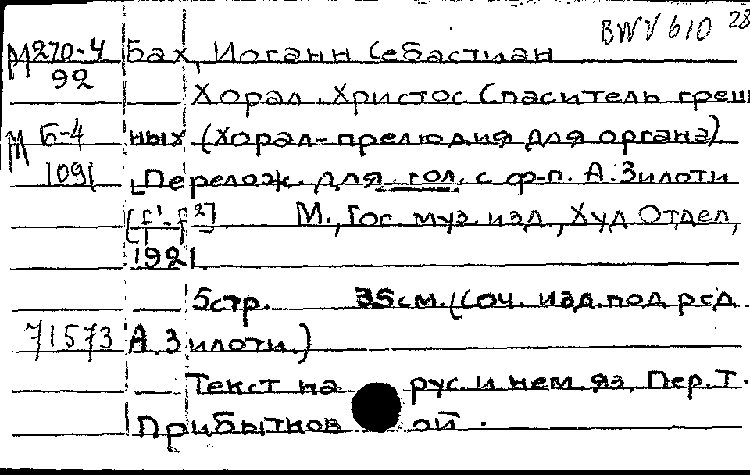 BWV 610 28
М 270-4 Бах, Иоганн Себастиан
92
Хорал. Христос Спаситель греш
М Б-4 ных (Хорал-прелюдия для органа)
1091 Перелож. для гол. с ф-п. А. Зилоти
[f¹-f²] М., Гос. муз. изд., Худ Отдел,
1921
5стр. 35см. (Соч. изд. под ред.
71573 А. Зилоти.)
Текст на рус. и нем. яз. Пер. Т.
Прибытков ой.